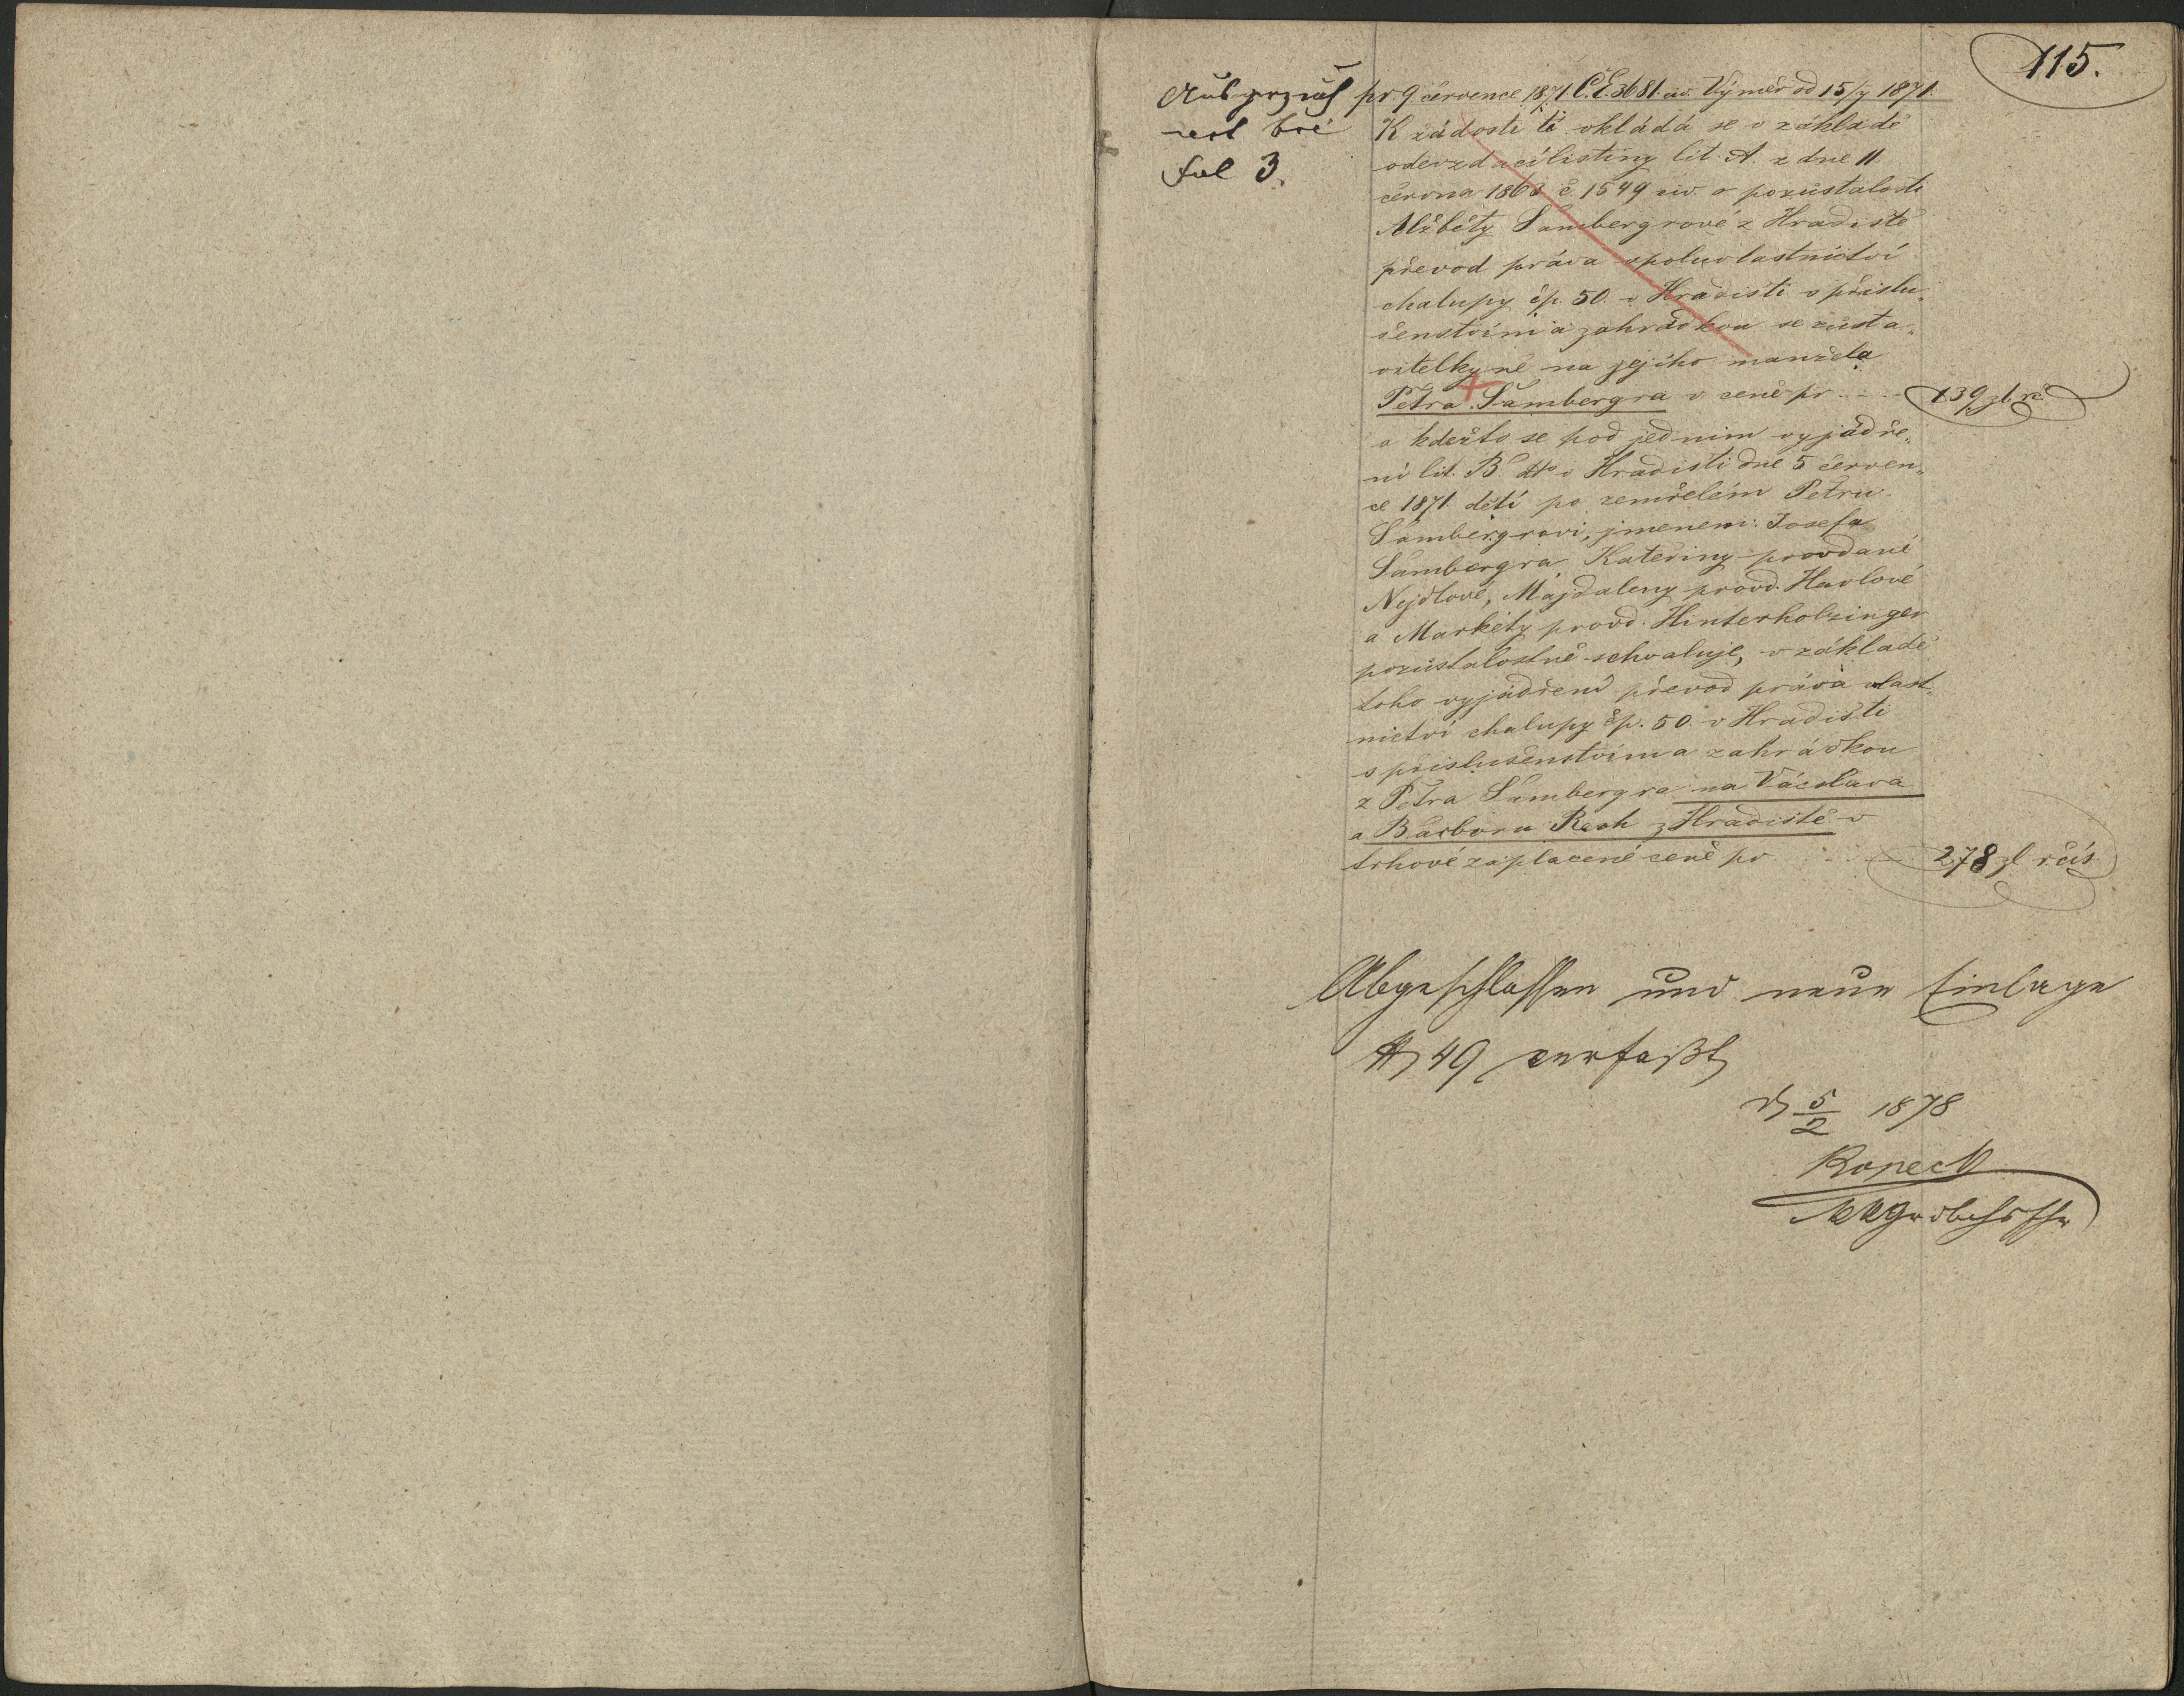 115.
fol 3.
pr. 9 července 1871 Č.E. 3681. civ. Výměr od 15/7 1871.
K žádosti té vkládá se v základě
odevzdací listiny lit. A. z dne 11.
června 1863 č 1549 civ. o pozůstalosti
Alžběty Šambergrové z Hradiště
převod práva spoluvlastnictví
chalupy čp. 50. v Hradišti s příslu„
šenstvím a zahrádkou se zůsta„
vitelkyně na jejího manžela
Petra Šambergra v ceně pr. . . . 139 zl. rč.
a kdežto se pod jedním vyjádře„
ní lit. B. dto v Hradišti dne 5 červen„
ce 1871 dětí po zemřelém Petru
Šambergrovi, jmenem: Josefa
Šambergra Kateřiny provdané
Nejdlové, Majdaleny provd. Havlové
a Markéty provd. Hinterholzinger
pozůstalostně schvaluje, v základě
toho vyjádření převod práva vlast„
nictví chalupy čp. 50. v Hradišti
s příslušenstvím a zahrádkou
z Petra Šambergra na Václava
a Barboru Rach z Hradiště v
trhové zaplacené ceně pr . . . . 278 zl rčís
Abgeschlossen und neue Einlage
N 49 verfaßt
d 5/2 1878